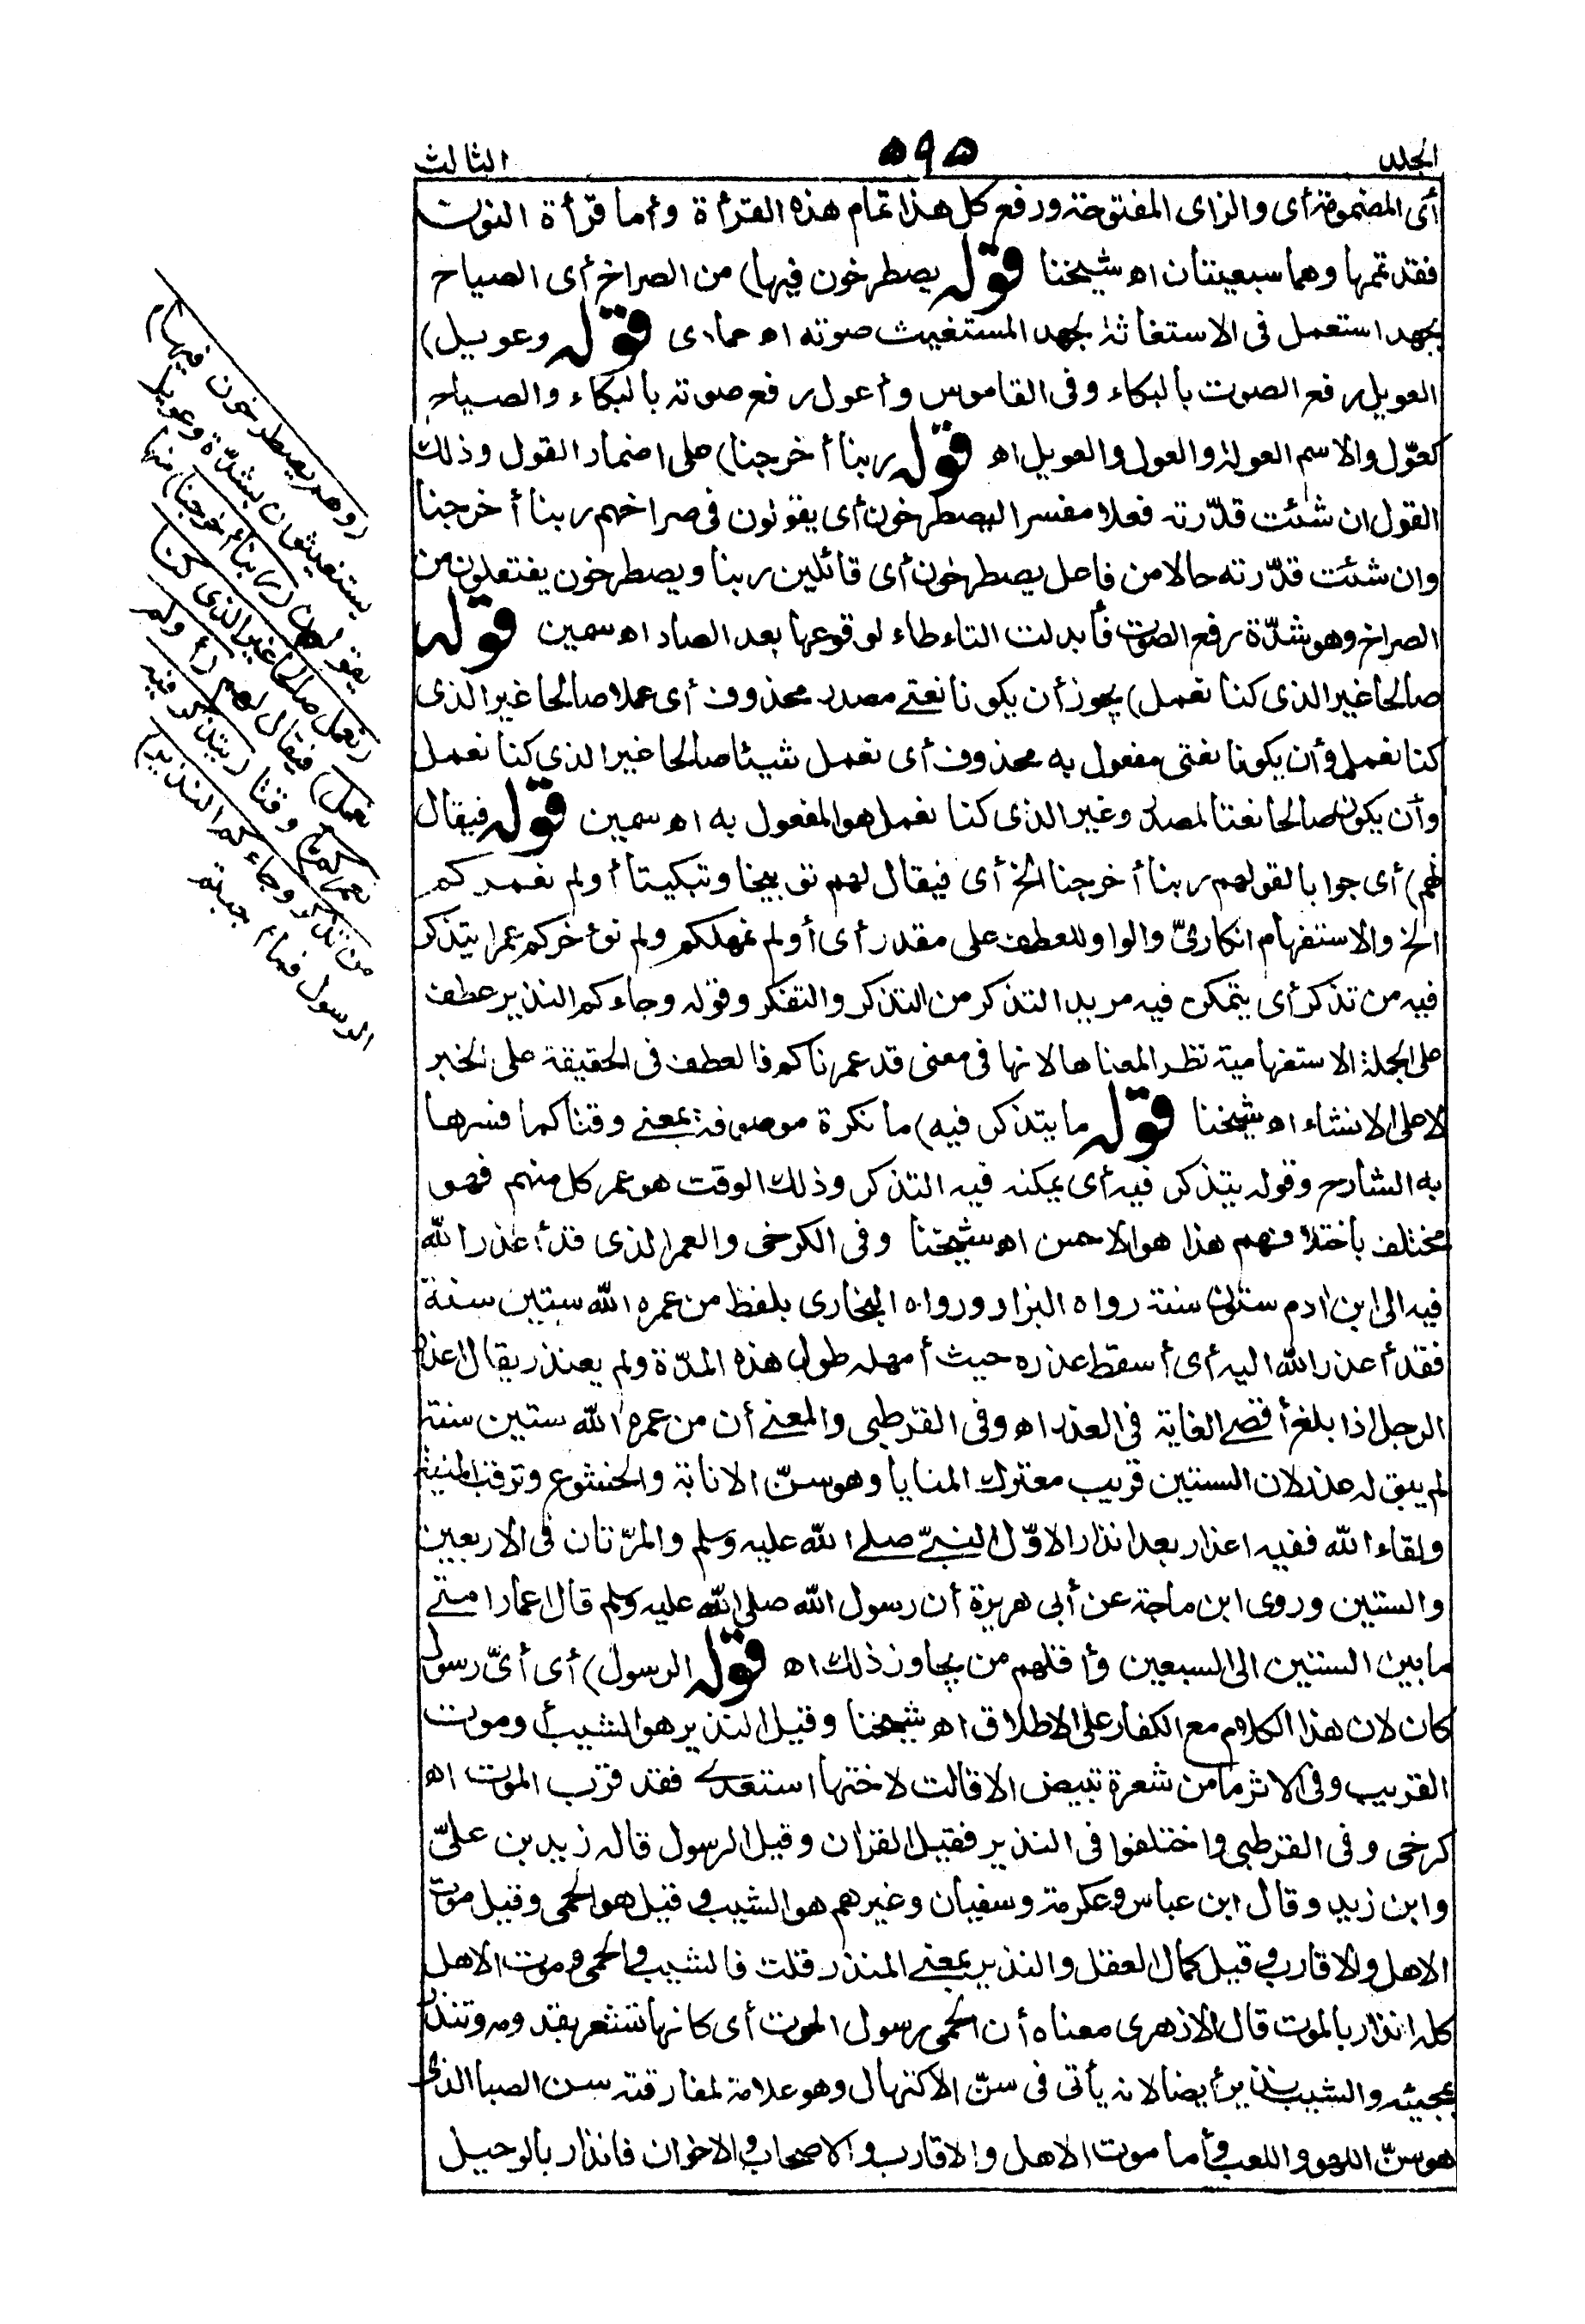 الجلد ٥٩٥ الثالث
أى المضمومة أى والزاى المفتوحة ورفع كل هذا تمام هذه القرأة وأما قرأة النون
فقد تممها وهما سبعيتان اه شيخنا قوله يصطرخون فيها) من الصراخ أى الصياح
بجهد استعمل فى الاستغاثة بجهد المستغيث صوته اه عمادى قوله وعويل)
العويل رفع الصوت بالبكاء وفى القاموس وأعول رفع صوته بالبكاء والصياح
كعوّل والاسم العولة والعول والعويل اه قوله ربنا أخرجنا) على اضمار القول وذلك
القول ان شئت قدّرته فعلا مفسرا ليصطرخون أى يقولون فى صراخهم ربنا أخرجنا
وان شئت قدّرته حالا من فاعل يصطرخون أى قائلين ربنا ويصطرخون يفتعلون من
الصراخ وهو شدّة رفع الصوت فأبدلت التاء طاء لوقوعها بعد الصاد اه سمين قوله
صالحا غير الذى كنا نعمل) يجوز أن يكونا نعتى مصدر محذوف أى عملا صالحا غير الذى
كنا نعمل وأن يكونا نعتى مفعول به محذوف أى نعمل شيئا صالحا غير الذى كنا نعمل
وأن يكون صالحا نعتا لمصدر وغير الذى كنا نعمل هو المفعول به اه سمين قوله فيقال
لهم) أى جوابا لقولهم ربنا أخرجنا الخ أى فيقال لهم توبيخا وتبكيتا أولم نعمركم
الخ والاستفهام انكارىّ والواو للعطف على مقدر أى أولم نمهلكم ولم نؤخركم عمرا يتذكر
فيه من تذكر أى يتمكن فيه مريد التذكر من التذكر والتفكر وقوله وجاءكم النذير عطف
على الجملة الاستفهامية نظرا لمعناها لانها فى معنى قد عمرناكم فالعطف فى الحقيقة على الخبر
لا على الانشاء اه شيخنا قوله ما يتذكر فيه) ما نكرة موصوفة بمعنى وقتا كما فسرها
به الشارح وقوله يتذكر فيه أى يمكنه فيه التذكر وذلك الوقت هو عمر كل منهم فهو
مختلف باختلافهم هذا هو الاحسن اه شيخنا وفى الكرخى والعمر الذى قد أعذر الله
فيه الى ابن ادم ستون سنة رواه البزار ورواه البخارى بلفظ من عمره الله ستين سنة
فقد أعذر الله اليه أى أسقط عذره حيث أمهله طول هذه المدّة ولم يعتذر يقال اعذر
الرجل اذا بلغ أقصى الغاية فى العذر اه وفى القرطبى والمعنى أن من عمره الله ستين سنة
لم يبق له عذر لان الستين قريب معترك المنايا وهو سنّ الانابة والخشوع وترقب المنية
ولقاء الله ففيه اعذار بعد انذار الاوّل النبىّ صلى الله عليه وسلم والمرّتان فى الاربعين
والستين وروى ابن ماجة عن أبى هريرة أن رسول الله صلى الله عليه وسلم قال اعمار امتى
ما بين الستين الى السبعين وأقلهم من يجاوز ذلك اه قوله الرسول) أى أىّ رسول
كان لان هذا الكلام مع الكفار على الاطلاق اه شيخنا وقيل النذير هو الشيب أو موت
القريب وفى الاثر ما من شعرة تبيض الا قالت لاختها استعدى فقد قرب الموت اه
كرخى وفى القرطبى واختلفوا فى النذير فقيل القران وقيل الرسول قاله زيد بن علىّ
وابن زيد وقال ابن عباس وعكرمة وسفيان وغيرهم هو الشيب وقيل هو الحمى وقيل موت
الاهل والاقارب وقيل كمال العقل والنذير بمعنى المنذر قلت فالشيب والحمى وموت الاهل
كله انذار بالموت قال الازهرى معناه أن الحمى رسول الموت أى كانها تشعر بقدومه وتنذر
بمجيئه والشيب نذير أيضا لانه يأتى فى سنّ الاكتهال وهو علامة لمفارقته سن الصبا الذى
هو سنّ اللهو واللعب وأما موت الاهل والاقارب والاصحاب والاخوان فانذار بالرحيل
(وهم يصطرخون فيها)
يستغيثون بشدّة وعويل
يقولون (ربنا أخرجنا) منها
(نعمل صالحا غير الذى كنا
نعمل) فيقال لهم (أولم
نعمركم ما) وقتا (يتذكر فيه
من تذكر وجاءكم النذير)
الرسول فما جئتم